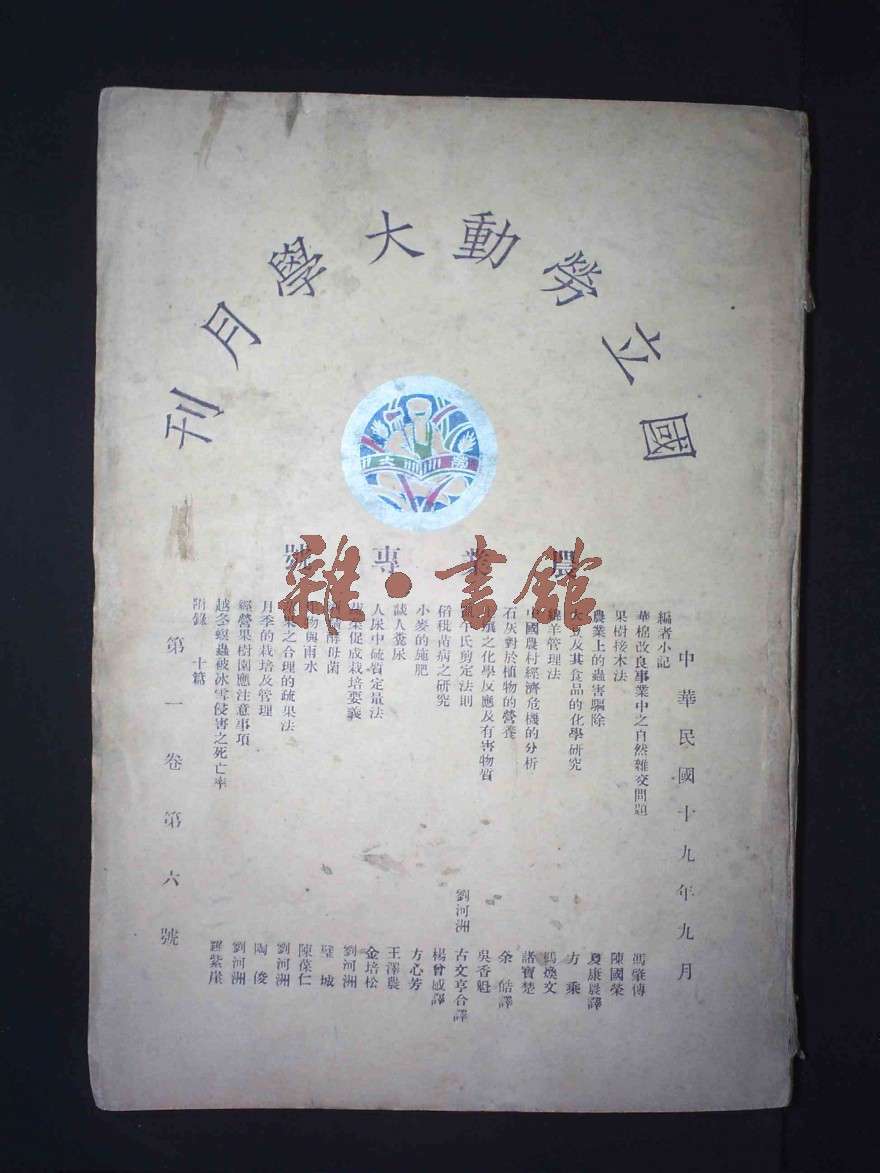 國立勞動大學月刊
勞大
農業專號
雜·書館
中華民國十九年九月
編者小記
華棉改良事業中之自然雜交問題 馮肇傳
果樹接木法 陳國榮
農業上的蟲害驅除 夏康農譯
大豆及其食品的化學研究 方乘
綿羊管理法 馮煥文
中國農村經濟危機的分析 諸寶楚
石灰對於植物的營養 余皓譯
壤之化學反應及有害物質 吳香魁
氏剪定法則 劉河洲 古文亨合譯
稻稅苗病之研究 楊曾威譯
小麥的施肥 方心芳
談人糞尿 王澤農
人尿中硫質定量法 金培松
蔬菜促成栽培要義 劉河洲
酵母菌 璧城
作物與雨水 陳葆仁
果之合理的疏果法 劉河洲
月季的栽培及管理 陶俊
經營果樹園應注意事項 劉河洲
越冬螟蟲被冰雪侵害之死亡率 羅紫崖
附錄 十篇
第一卷第六號